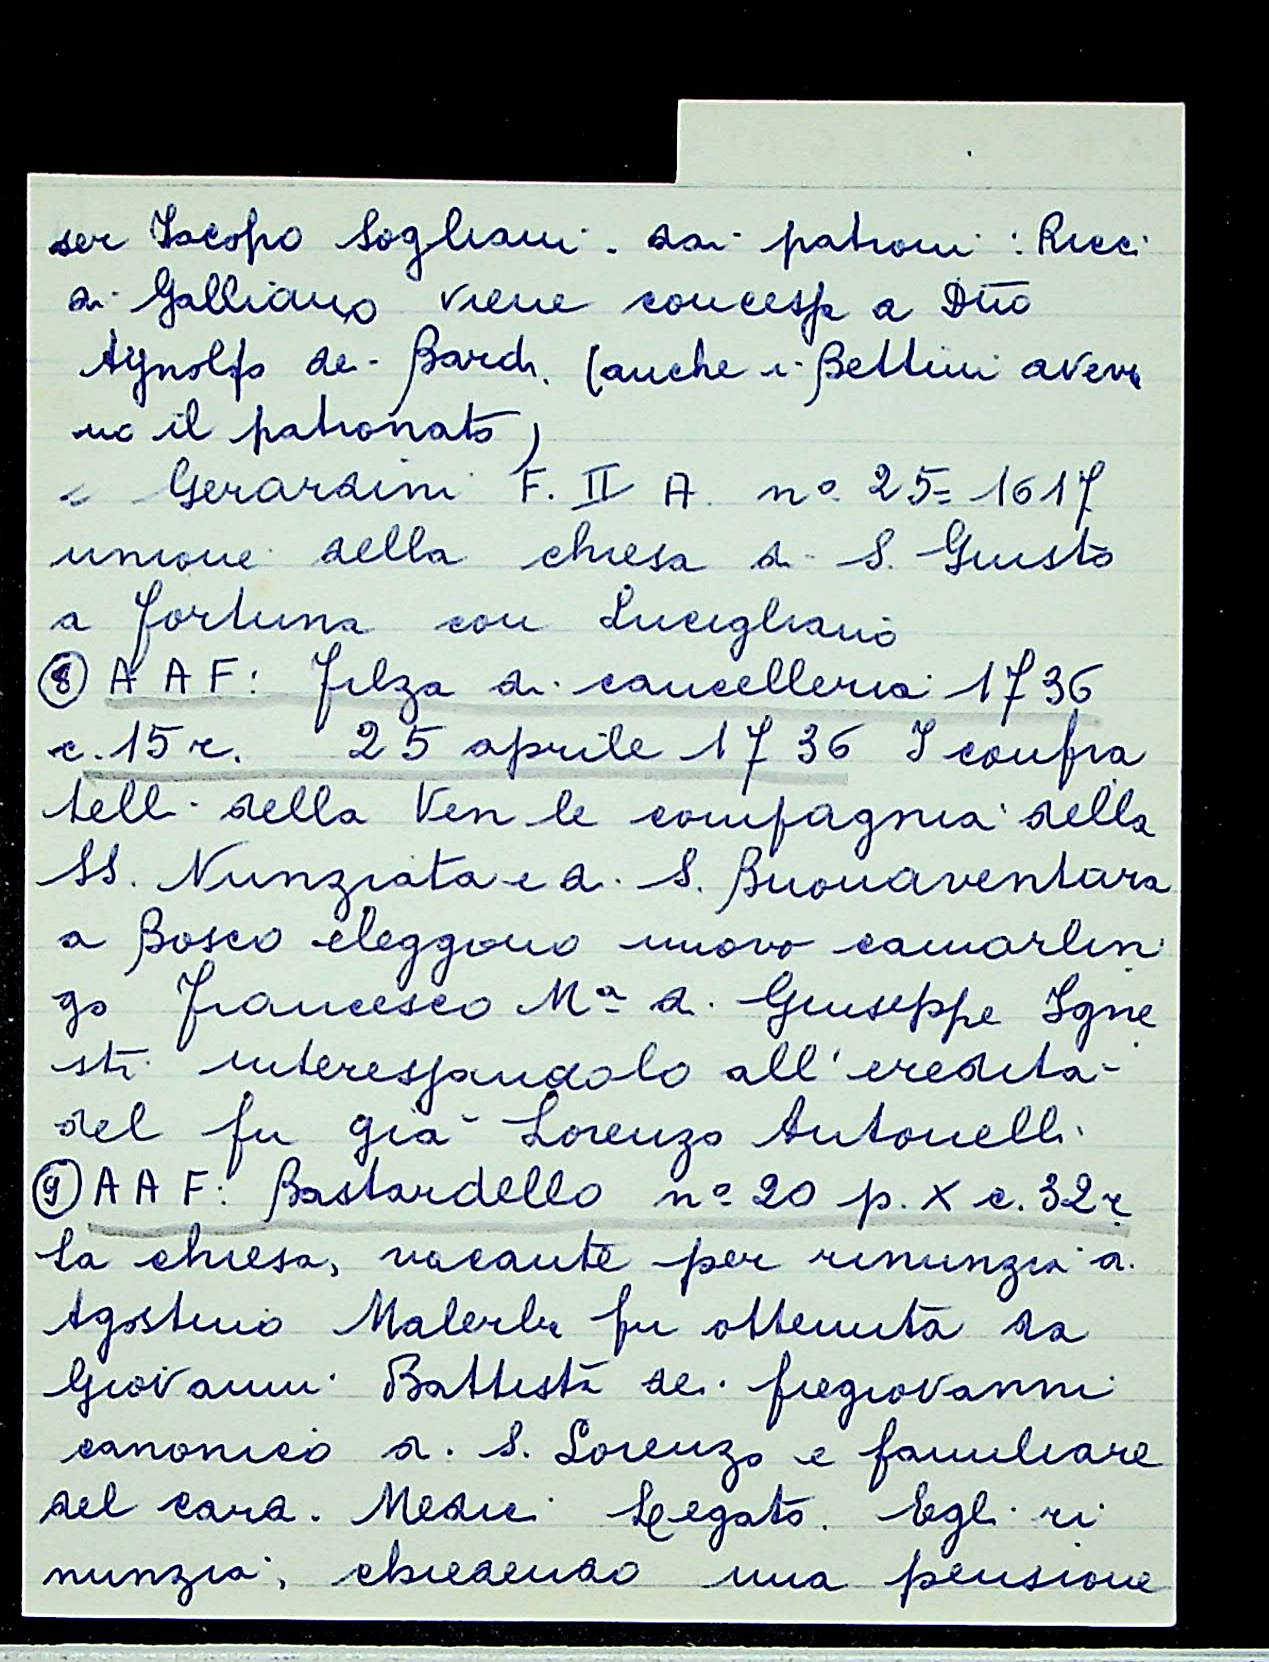 ser Iacopo Sogliani. dai patroni: Ricci
di Galliano viene concesso a Dño
Agnolfo dei Bardi. (anche i Bettini aveva
no il patronato)
Gerardini F. II A. nº 25= 1617
unione della chiesa di S. Giusto
a Fortuna con Lucigliano
⑧ A A F: Filza di cancelleria 1736
c. 15r. 25 aprile 1736 I confra
telli della Ven le compagnia della
SS. Nunziata e di S. Buonaventura
a Bosco eleggono nuovo camarlin
go Francesco Mª di Giuseppe Igne
sti interessandolo all'eredità
del fu già Lorenzo Antonelli.
⑨ A A F: Bastardello nº 20 p. X c. 32r
la chiesa, vacante per rinunzia di
Agostino Malerbi fu ottenuta da
Giovanni Battista dei fregiovanni
canonico di S. Lorenzo e familiare
del card. Medici Legato. Egli ri
nunzia, chiedendo una pensione